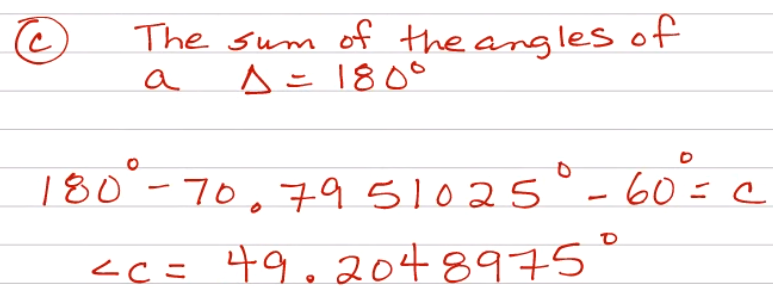 (c) The sum of the angles of
a Δ = 180°
180° - 70.7951025° - 60° = c
<c = 49.2048975°